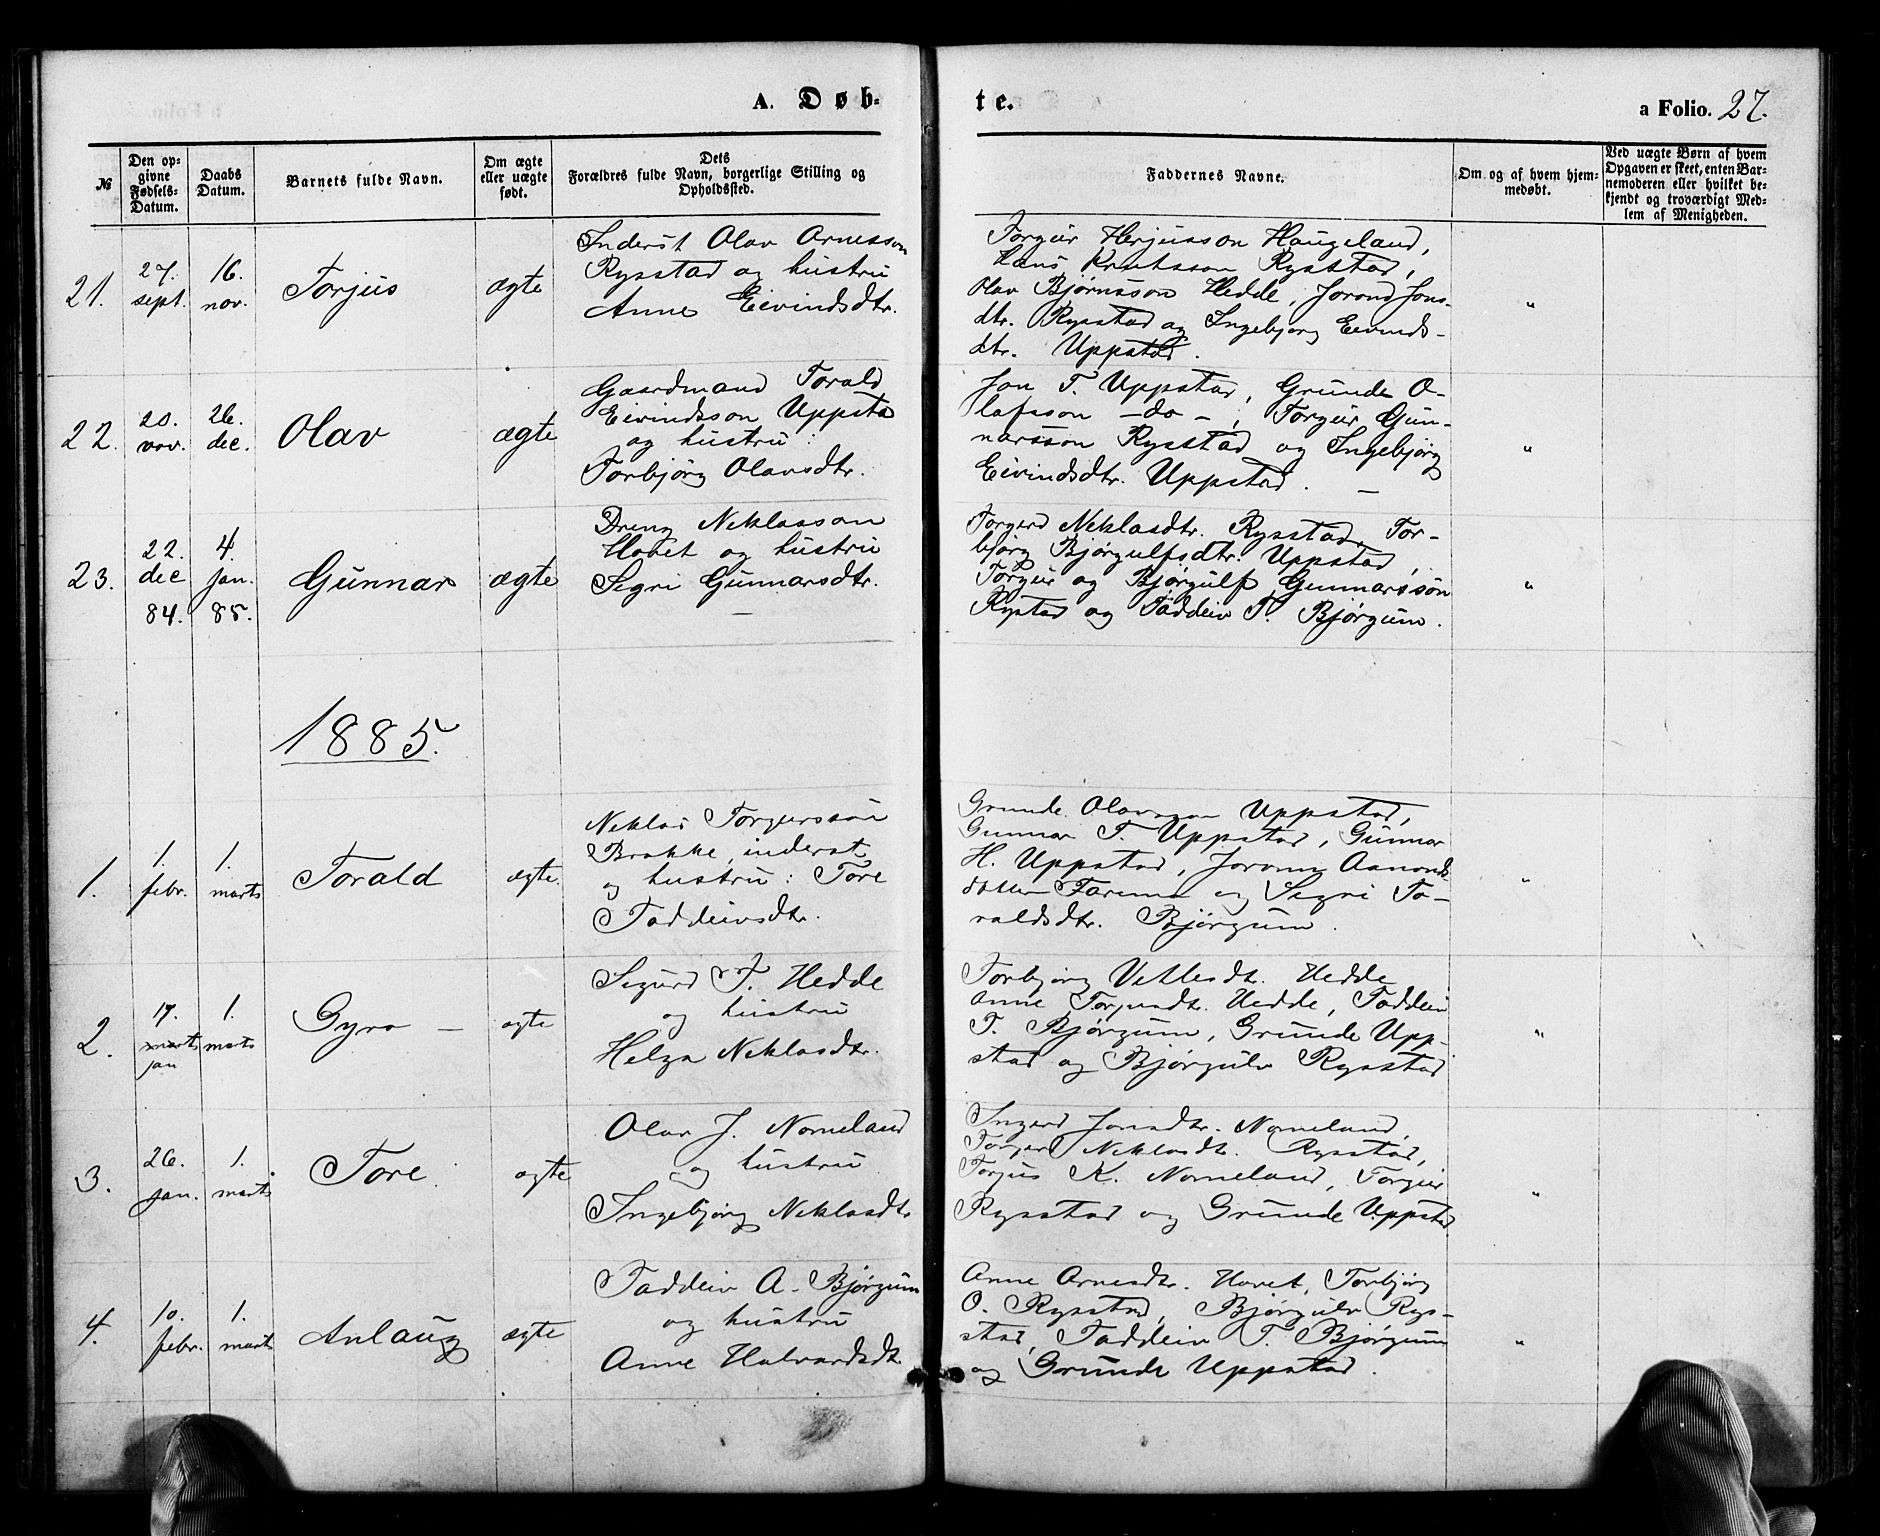 A. Døb-
te.
a Folio. 27.
№
Den op-
givne
Fødsels-
Datum.
Daabs
Datum.
Barnets fulde Navn.
Om ægte
eller uægte
født.
Dets
Forældres fulde Navn, borgerlige Stilling og
Opholdssted.
Faddernes Navne.
Om og af hvem hjem-
medøbt.
Ved uægte Børn af hvem
Opgaven er skeet, enten Bar-
nemoderen eller hvilket be-
kjendt og troværdigt Med-
lem af Menigheden.
21.
27.
sept.
16.
nov.
Torjus
ægte
Inderst Olav Arnesson
Rysstad og hustru
Anne Eivindsdtr.
Torgeir Herjusson Haugeland,
Hans Knutsson Rysstad,
Olav Bjørnsson Hedde, Jorond Jons-
dtr. Rysstad og Ingebjorg Eivinds-
dtr. Uppstad.
"
22.
20.
nov.
26.
dec.
Olav
ægte
Gaardmand Torald
Eivindsson Uppsta
og hustru:
Torbjørg Olavsdtr.
Jon T. Uppstad, Grunde O-
lafsson -do-, Torgeir Gun-
narsson Rysstad og Ingebjørg
Eivindsdtr. Uppstad. —
"
23.
22.
dec
84.
4.
jan.
85.
Gunnar
ægte
Dreng Neklasson
Hovet og hustru
Segri Gunnarsdtr.
—
Torgerd Neklasdtr. Rysstad, Tor-
bjørg Bjørgulfsdtr. Uppstad,
Torgeir og Bjørgulf Gunnarsson
Rystad og Taddeiv T. Bjørgum.
"
1885.
1.
1.
febr.
1.
marts
Torald
ægte.
Neklas Torgeirsson
Brokke, inderst
og hustru: Tore
Taddeivsdtr.
Grunde Olavsson Uppstad,
Gunnar T. Uppstad, Gunnar
H. Uppstad, Joronn Aamonds-
datter Farema og Segri To-
raldsdtr. Bjørgum.
"
2.
17.
marts
jan
1.
marts
Gyro —
ægte
Sigurd T. Hedde
og hustru
Helga Neklasdtr.
Torbjørg Vetlesdt. Hedde
Anne Torjusdt. Hedde, Taddeiv
T. Bjørgum, Grunde Upp-
stad og Bjørgulv Rysstad
"
3.
26.
jan.
1.
marts
Tore.
ægte
Olav J. Nomeland
og hustru
Ingebjørg Neklasdt.
Ingerd Jonsdtr. Nomeland,
Torgerd Neklasdt. Rysstad,
Torjus K. Nomeland, Torgeir
Rysstad og Grunde Uppstad.
"
4.
10.
febr.
1.
marts
Anlaug
ægte
Taddeiv A. Bjørgum
og hustru
Anne Halvardsdt.
Anne Arnesdtr. Hovet, Torbjørg
O. Rysstad, Bjørgulv Rys-
stad, Taddeiv T. Bjørgum
og Grunde Uppstad.
"